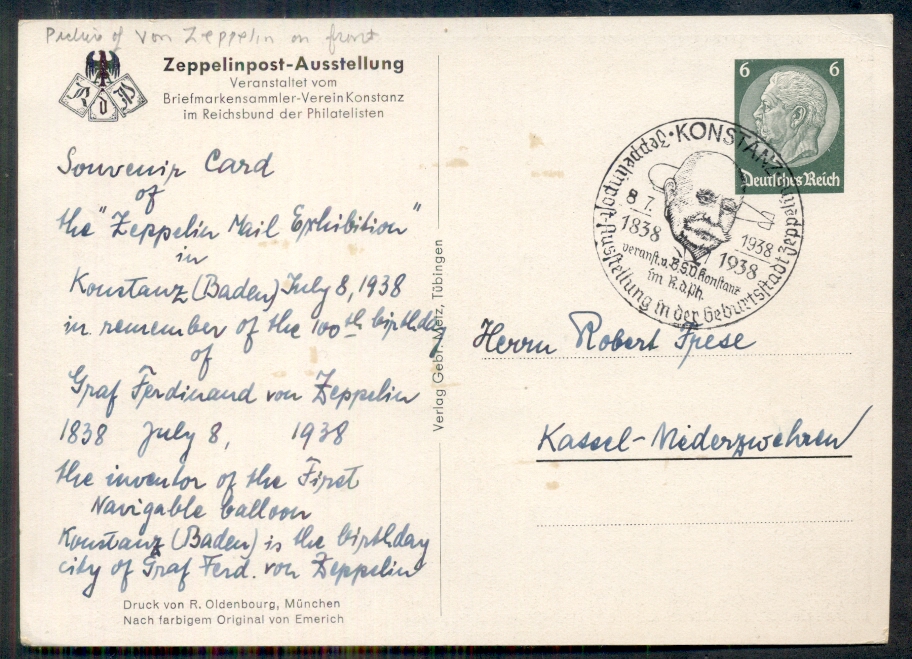 Picture of Von Zeppelin on front
Zeppelinpost-Ausstellung
Veranstaltet vom
Briefmarkensammler-Verein Konstanz
im Reichsbund der Philatelisten
R d Ph
Souvenir Card
of
the "Zeppelin Mail Exhibition"
in
Konstanz (Baden) July 8, 1938
in remember of the 100th birthday
of
Graf Ferdinand von Zeppelin
1838 July 8, 1938
the inventor of the First
Navigable balloon
Konstanz (Baden) is the birthday
city of Graf Ferd. von Zeppelin
Druck von R. Oldenbourg, München
Nach farbigem Original von Emerich
Verlag Gebr. Metz, Tübingen
6 6
Deutsches Reich
KONSTANZ
Zeppelinpost-Ausstellung in der Geburtsstadt Zeppelins
8 7.
1838
1938
1938
veranst. v. B.S.V. Konstanz
im R.d.Ph.
Herrn Robert Frese
Kassel-Niederzwehren